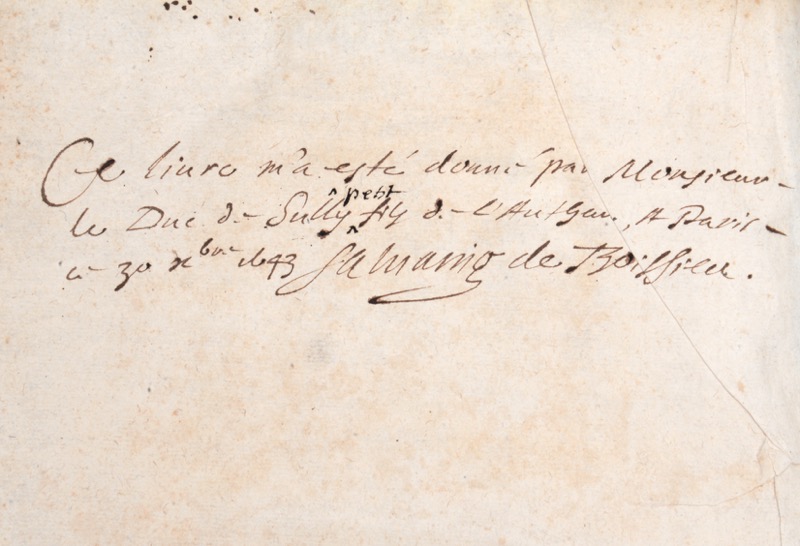 Ce liure m'a esté donné par Monsieur
le Duc de Sully petit fils de l'Autheur, A Paris
ce 30 xbre 1643 Salvaing de Boissieu.